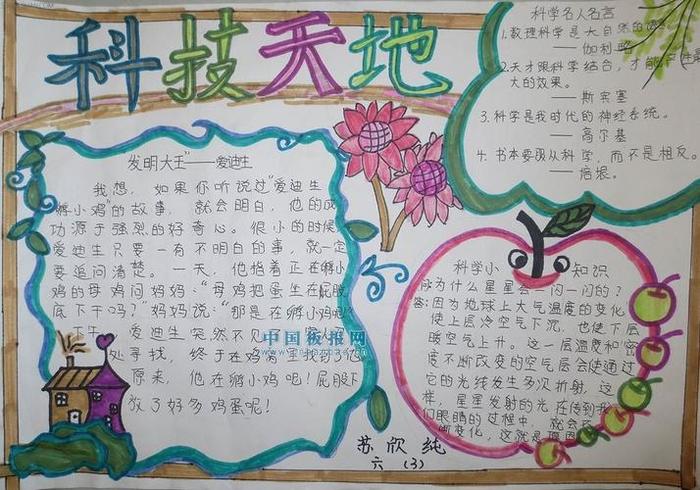 科技天地
科学名人名言
1. 数理科学是大自然的语
——伽利略
2. 天才跟科学结合，才能产生
大的效果。
——斯宾塞
3. 科学是我时代的神经系统。
——高尔基
4. 书本要服从科学，而不是相反。
——培根。
发明大王"——爱迪生
我想，如果你听说过"爱迪生
孵小鸡"的故事，就会明白，他的成
功源于强烈的好奇心。很小的时候，
爱迪生只要一有不明白的事，就一定
要追问清楚。一天，他指着正在孵小
鸡的母鸡问妈妈："母鸡把蛋坐在屁股
底下干吗？"妈妈说："那是在孵小鸡呢！"
下午，爱迪生突然不见
处寻找，终于在鸡
原来，他在孵小鸡呢！屁股下
放了好多鸡蛋呢！
中国板报网
科学小知识
为什么星星会一闪一闪的？
答：因为地球上大气温度的变化
使上层冷空气下沉，也使下层
暖空气上升。这一层温度和密
度不断改变的空气层会使通过
它的光线发生多次折射，这
样，星星发射的光在传到我
们眼睛的过程中，就会
断变化，这就是原因
苏欣纯
六（3）